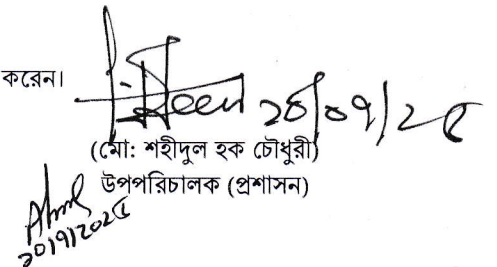 করেন।
২০/০৭/২৫
(মো: শহীদুল হক চৌধুরী)
উপপরিচালক (প্রশাসন)
২০/৭/২০২৫